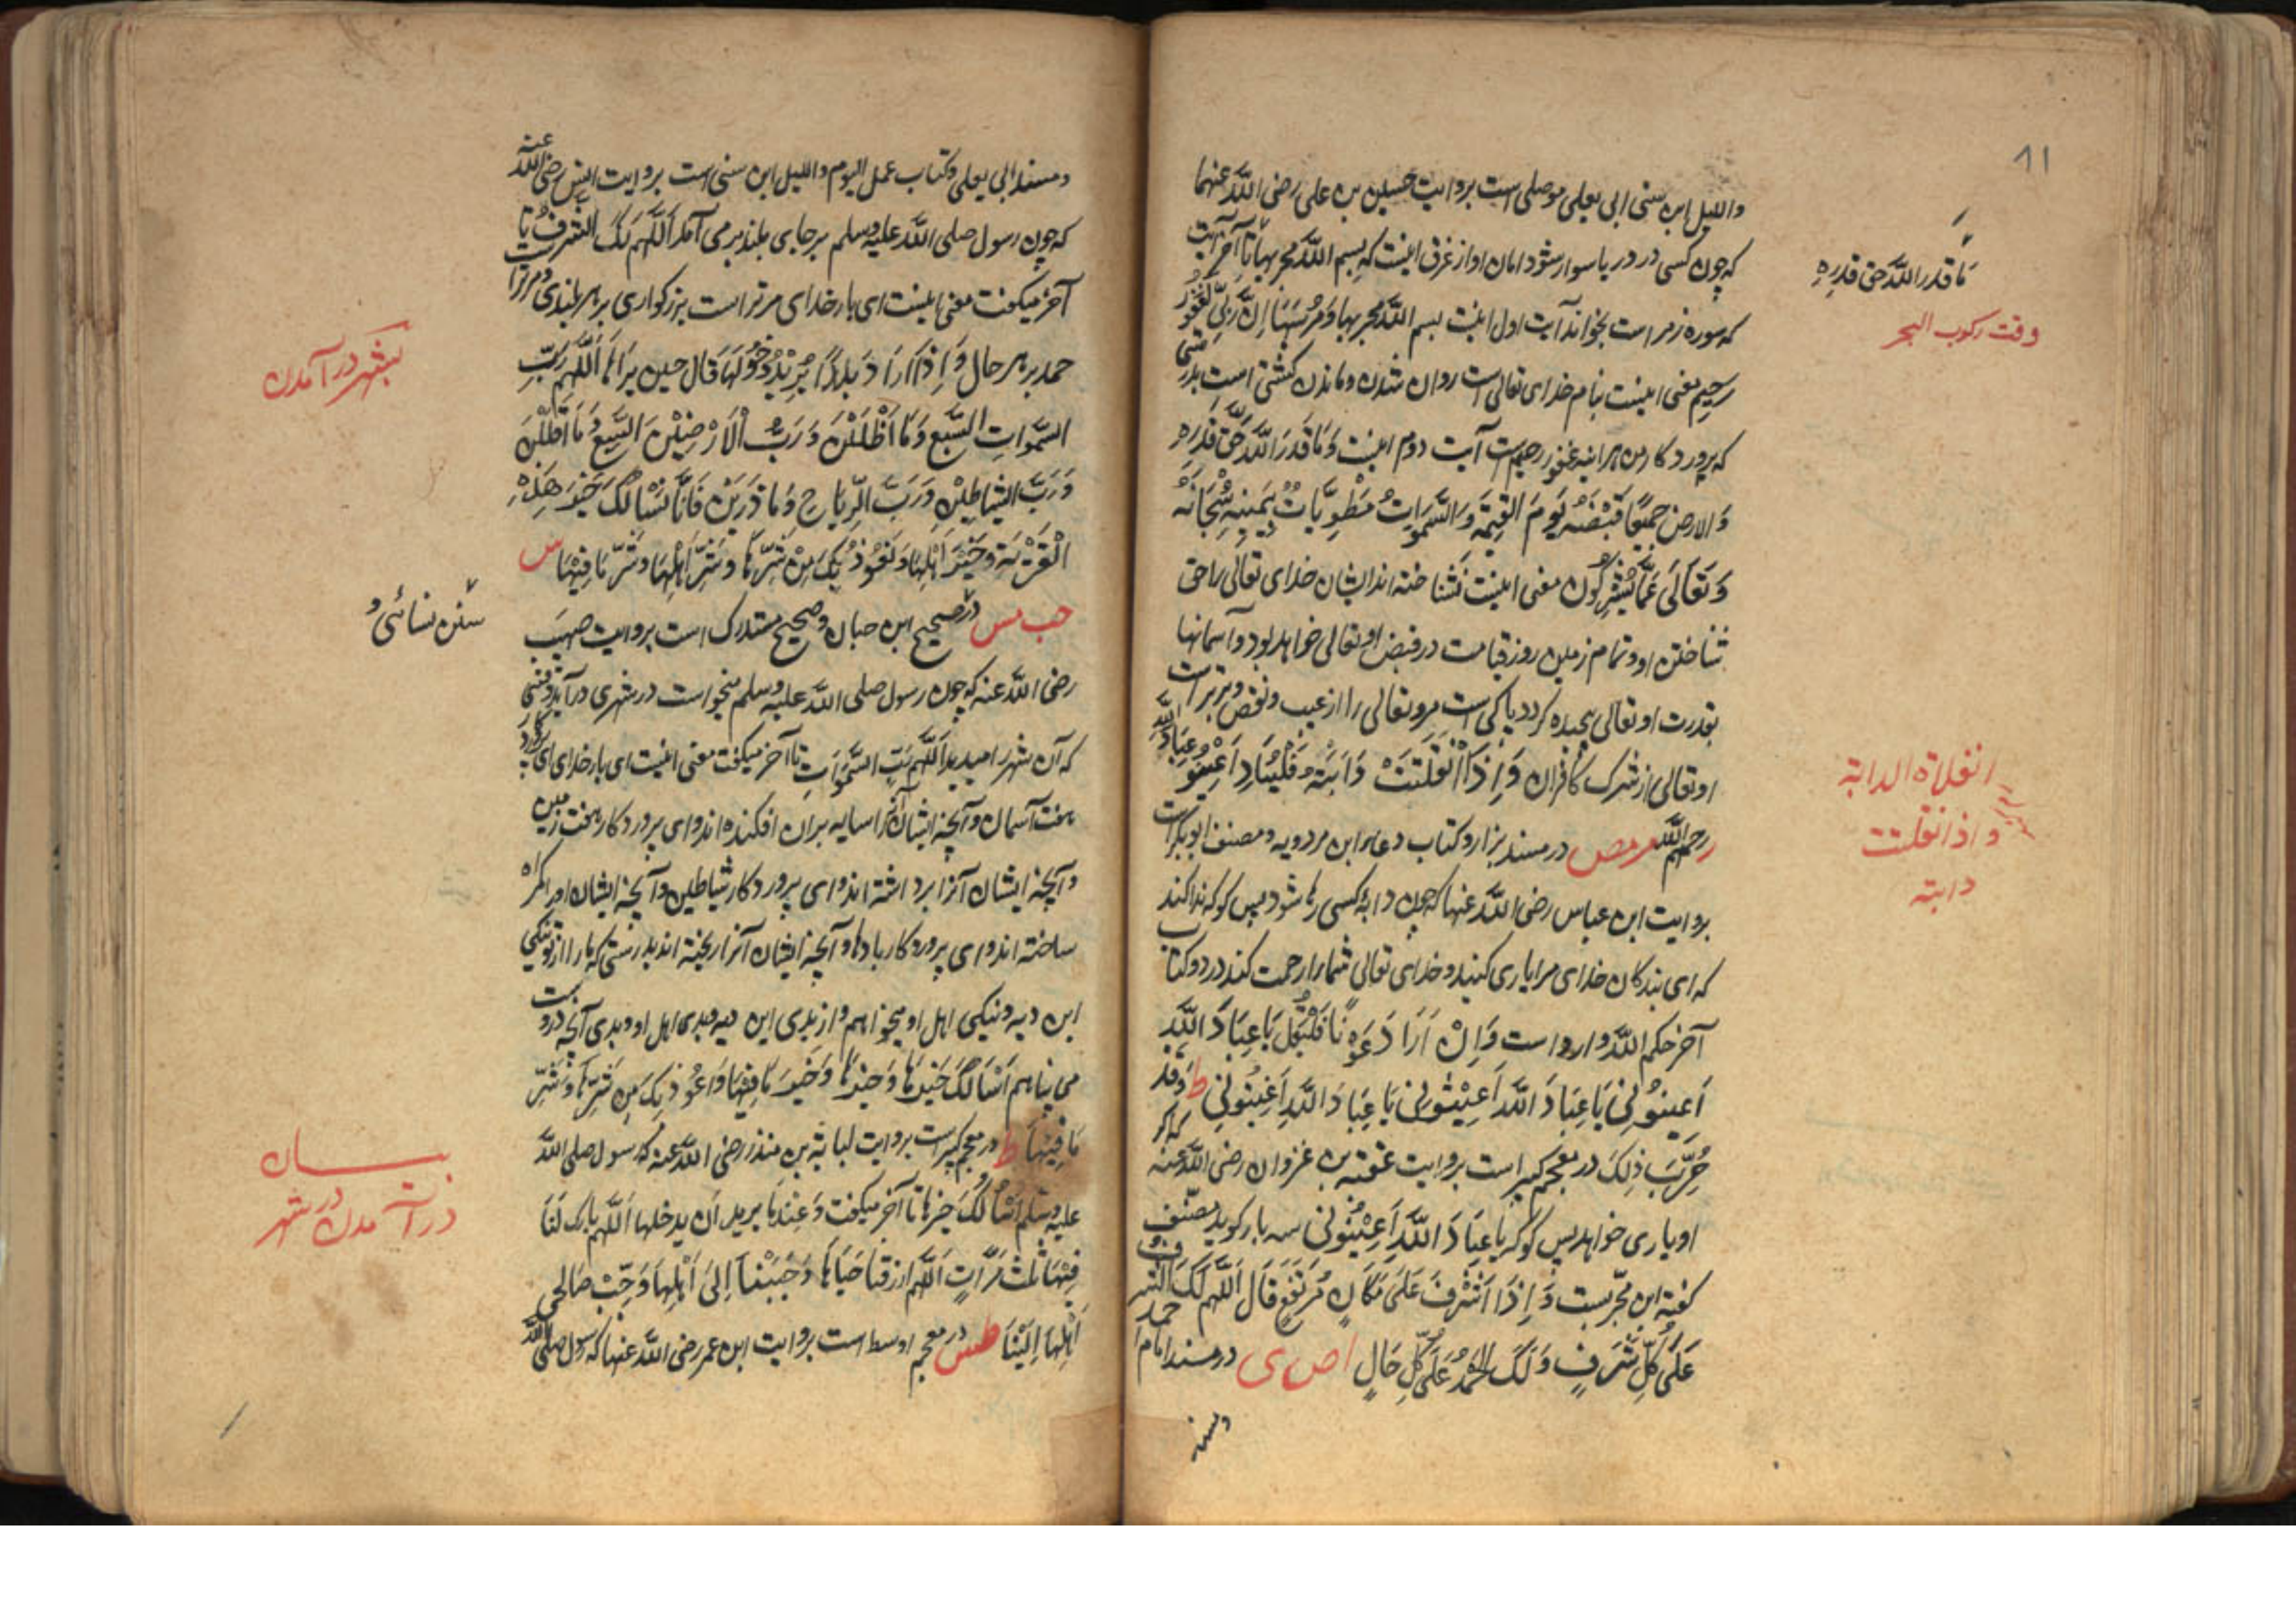 ٨١
واللیل ابن سنی ابی یعلی موصلی است بروایت حسین بن علی رضی اللّه عنهما
که چون کسی در دریا سوار شود امان او از غرق اینست که بسم اللّه مجریها تا آخر آیت
ما قدر اللّه حق قدره
وقت رکوب البحر
که سوره زمر است بخواند آیت اول اینت بسم اللّه مجریها وَمُرْسٰهَا اِنَّ رَبِّی لَغَفُورٌ
رحیم معنی اینست بنام خدای تعالی است روان شدن و ماندن کشتی است بدرستی
که پروردگار من هر اینه غفور رحیم است آیت دوم اینست وَمَا قَدَرَ اللّهَ حَقَّ قَدْرِهِ
وَالارض جمیعًا قَبْضَتُهُ یَوْمَ القِیٰمَةِ وَالسَّمٰوٰاتُ مَطْوِیَّاتٌ بِیَمِینِهِ سُبْحَانَهُ
وَتَعَالَی عَمَّا یُشْرِکُون معنی اینست نشناخته اند ایشان خدای تعالی را حق
شناختن او و تمام زمین روز قیامت در قبض او تعالی خواهد بود و آسمانها
بقدرت او تعالی پیچیده گردد پاکی است مرو تعالی را از عیب و نقص و برتر است
او تعالی از شرک کافران وَاِذَا انْفَلَتَتْ دَابَّتُهُ فَلْیُنَادِ اَعِیْنُو عِبَادَ اللّه
انفلاة الدابة
و اذا نفلتت
دابته
رحمکم اللّه مرمص در مسند بزار و کتاب دعاء ابن مردویه و مصنف ابوبکر است
بروایت ابن عباس رضی اللّه عنها که چون دابهٔ کسی رها شود پس کو که ندا کند
که ای بندکان خدای مرا یاری کنید و خدای تعالی شما را رحمت کند در دو کتاب
آخر حکم اللّه وارد است وَاِنْ اَرَادَ عَوْنًا فَلْیَقُل یَا عِبَادَ اللّهِ
اَعِینُوْنِی یَا عِبَادَ اللّه اَعِیْنُونی یَا عِبَادَ اللّهِ اَعِیْنُونِی ط وَقَد
جُرِّبَ ذٰلِکَ در معجم کبیر است بروایت عتبه بن غزوان رضی اللّه عنه که اکر
او یاری خواهد پس کو که یا عِبَادَ اللّهِ اَعِیْنُونی سه بار کوید مصنف
کفته این مجربست وَاِذَا اَشْرَفَ عَلَی مَکَانٍ مُرتَفِعٍ قَالَ اَللّهُم لَکَ الشَّرَفُ
عَلَی کُلِّ شَرَفٍ وَلَکَ الحَمْدُ عَلَی کُلِّ حَالٍ ا ص ی در مسند امام احمد
و مسند
و مسند ابی یعلی و کتاب عمل الیوم واللیل ابن سنی است بروایت انس رضی اللّه عنه
که چون رسول صلی اللّه علیه وسلم بر جای بلند بر می آمد اَللّهُم لَکَ الشرف تا
آخر میکفت معنی اینست ای بار خدای مر تراست بزرکواری بر هر بلندی و مر ترا است
حمد بر هر حال وَاِذَا اَرَادَ بَلَدًا یُرِیْدُ دُخُوْلَهَا قَال حین یَرَاهَا اَللّهُمَّ رَبَّ
بشهر در آمدن
السَّمٰوَاتِ السَّبْعِ وَمَا اَظْلَلْنَ وَرَبَّ الْاَرْضِیْنَ السَّبْعِ وَمَا اَقْلَلْنَ
وَرَبَّ الشَّیَاطِیْنِ وَرَبَّ الرِّیَاحِ وَمَا ذَرَیْنَ فَاِنَّا نَسْاَلُکَ خَیْرَ هٰذِهِ
الْقَرْیَةِ وَخَیْرَ اَهْلِهَا وَنَعُوْذُ بِکَ مِنْ شَرِّهَا وَشَرِّ اَهْلِهَا وَشَرِّ مَا فِیْهَا س
سنن نسائی و
حب مس در صحیح ابن حبان و صحیح مستدرک است بروایت صهیب
رضی اللّه عنه که چون رسول صلی اللّه علیه وسلم میخواست در شهری در آید وقتی
که آن شهر را میدید اَللّهُم رَبَّ السَّمٰوَاتِ تا آخر میکفت معنی اینست ای بار خدای ای پروردکار
هفت آسمان و آنچه ایشان آنرا سایه بران افکنده اند و ای پروردکار هفت زمین
و آنچه ایشان آنرا برداشته اند و ای پروردکار شیاطین و آنچه ایشان او را گمراه
ساخته اند و ای پروردکار بادها و آنچه ایشان آنرا ریخته اند بدرستی که ما را از تو نیکی
این دیه و نیکی اهل او میخواهم و از بدی این دیه و بدی اهل او و بدی آنچه دروست
می پناهم اَسْاَلُکَ خَیْرَهَا وَخَیْرَهَا وَخَیْرَ مَا فِیْهَا وَاَعُوْذُ بِکَ مِن شَرِّهَا وَشَرِّ
مَا فِیْهَا ط در معجم کبیر است بروایت لبابة بن منذر رضی اللّه عنه که رسول صلی اللّه
بیان
در آمدن در شهر
علیه وسلم اَسْاَلُکَ خیرها تا آخر میکفت وَعِنْدَمَا یرید اَن یدخلها اَللّهُم بارک لَنَا
فِیْهَا ثلٰث مَرَّاتٍ اَللّهُم ارزقنا جَنَاهَا وَحَبِّبْنَا اِلیٰ اَهْلِهَا وَحَبِّبْ صَالحی
اَهْلِهَا اِلَیْنَا طس در معجم اوسط است بروایت ابن عمر رضی اللّه عنها که رسول صلی اللّه